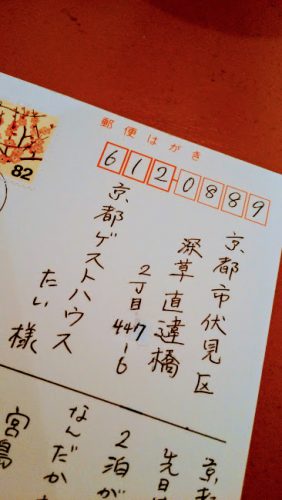 82
郵便はがき
612-0889
京都市伏見区
深草直違橋
2丁目447-6
京都ゲストハウス
たい様
京都
先日は
2泊が
なんだかた
宮島